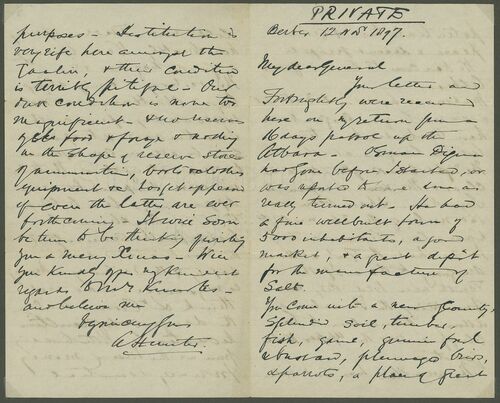 PRIVATE
Berber 12 Nov 1897.
My dear General
Your letter and
Fortnightly were received
here on my return from a
16 days patrol up the
Atbara - Osman Digna
had gone before I started, or
was reported to have done so
really turned out. He had
a fine well built town of
5000 inhabitants, a good
market, & a great depôt
for the manufacture of
Salt.
You come into a new Country,
Splendid soil, timber,
fish, game, guinea fowl
& bustard, plumage birds,
& parrots, a place of great
purposes - Destitution is
very rife here amongst the
Jaalin, & their condition
is terribly pitiful - Our
own condition is none too
magnificent - & no reserve
of food & forage & nothing
in the shape of reserve store
of ammunition, boots & clothes
equipment &c
of even the latter are ever
forthcoming - It will soon
be time to be thinking of wishing
you a merry Xmas - Will
you kindly give my kindest
regards to Mrs Knowles -
and believe me
Very sincerely yours
A Hunter.